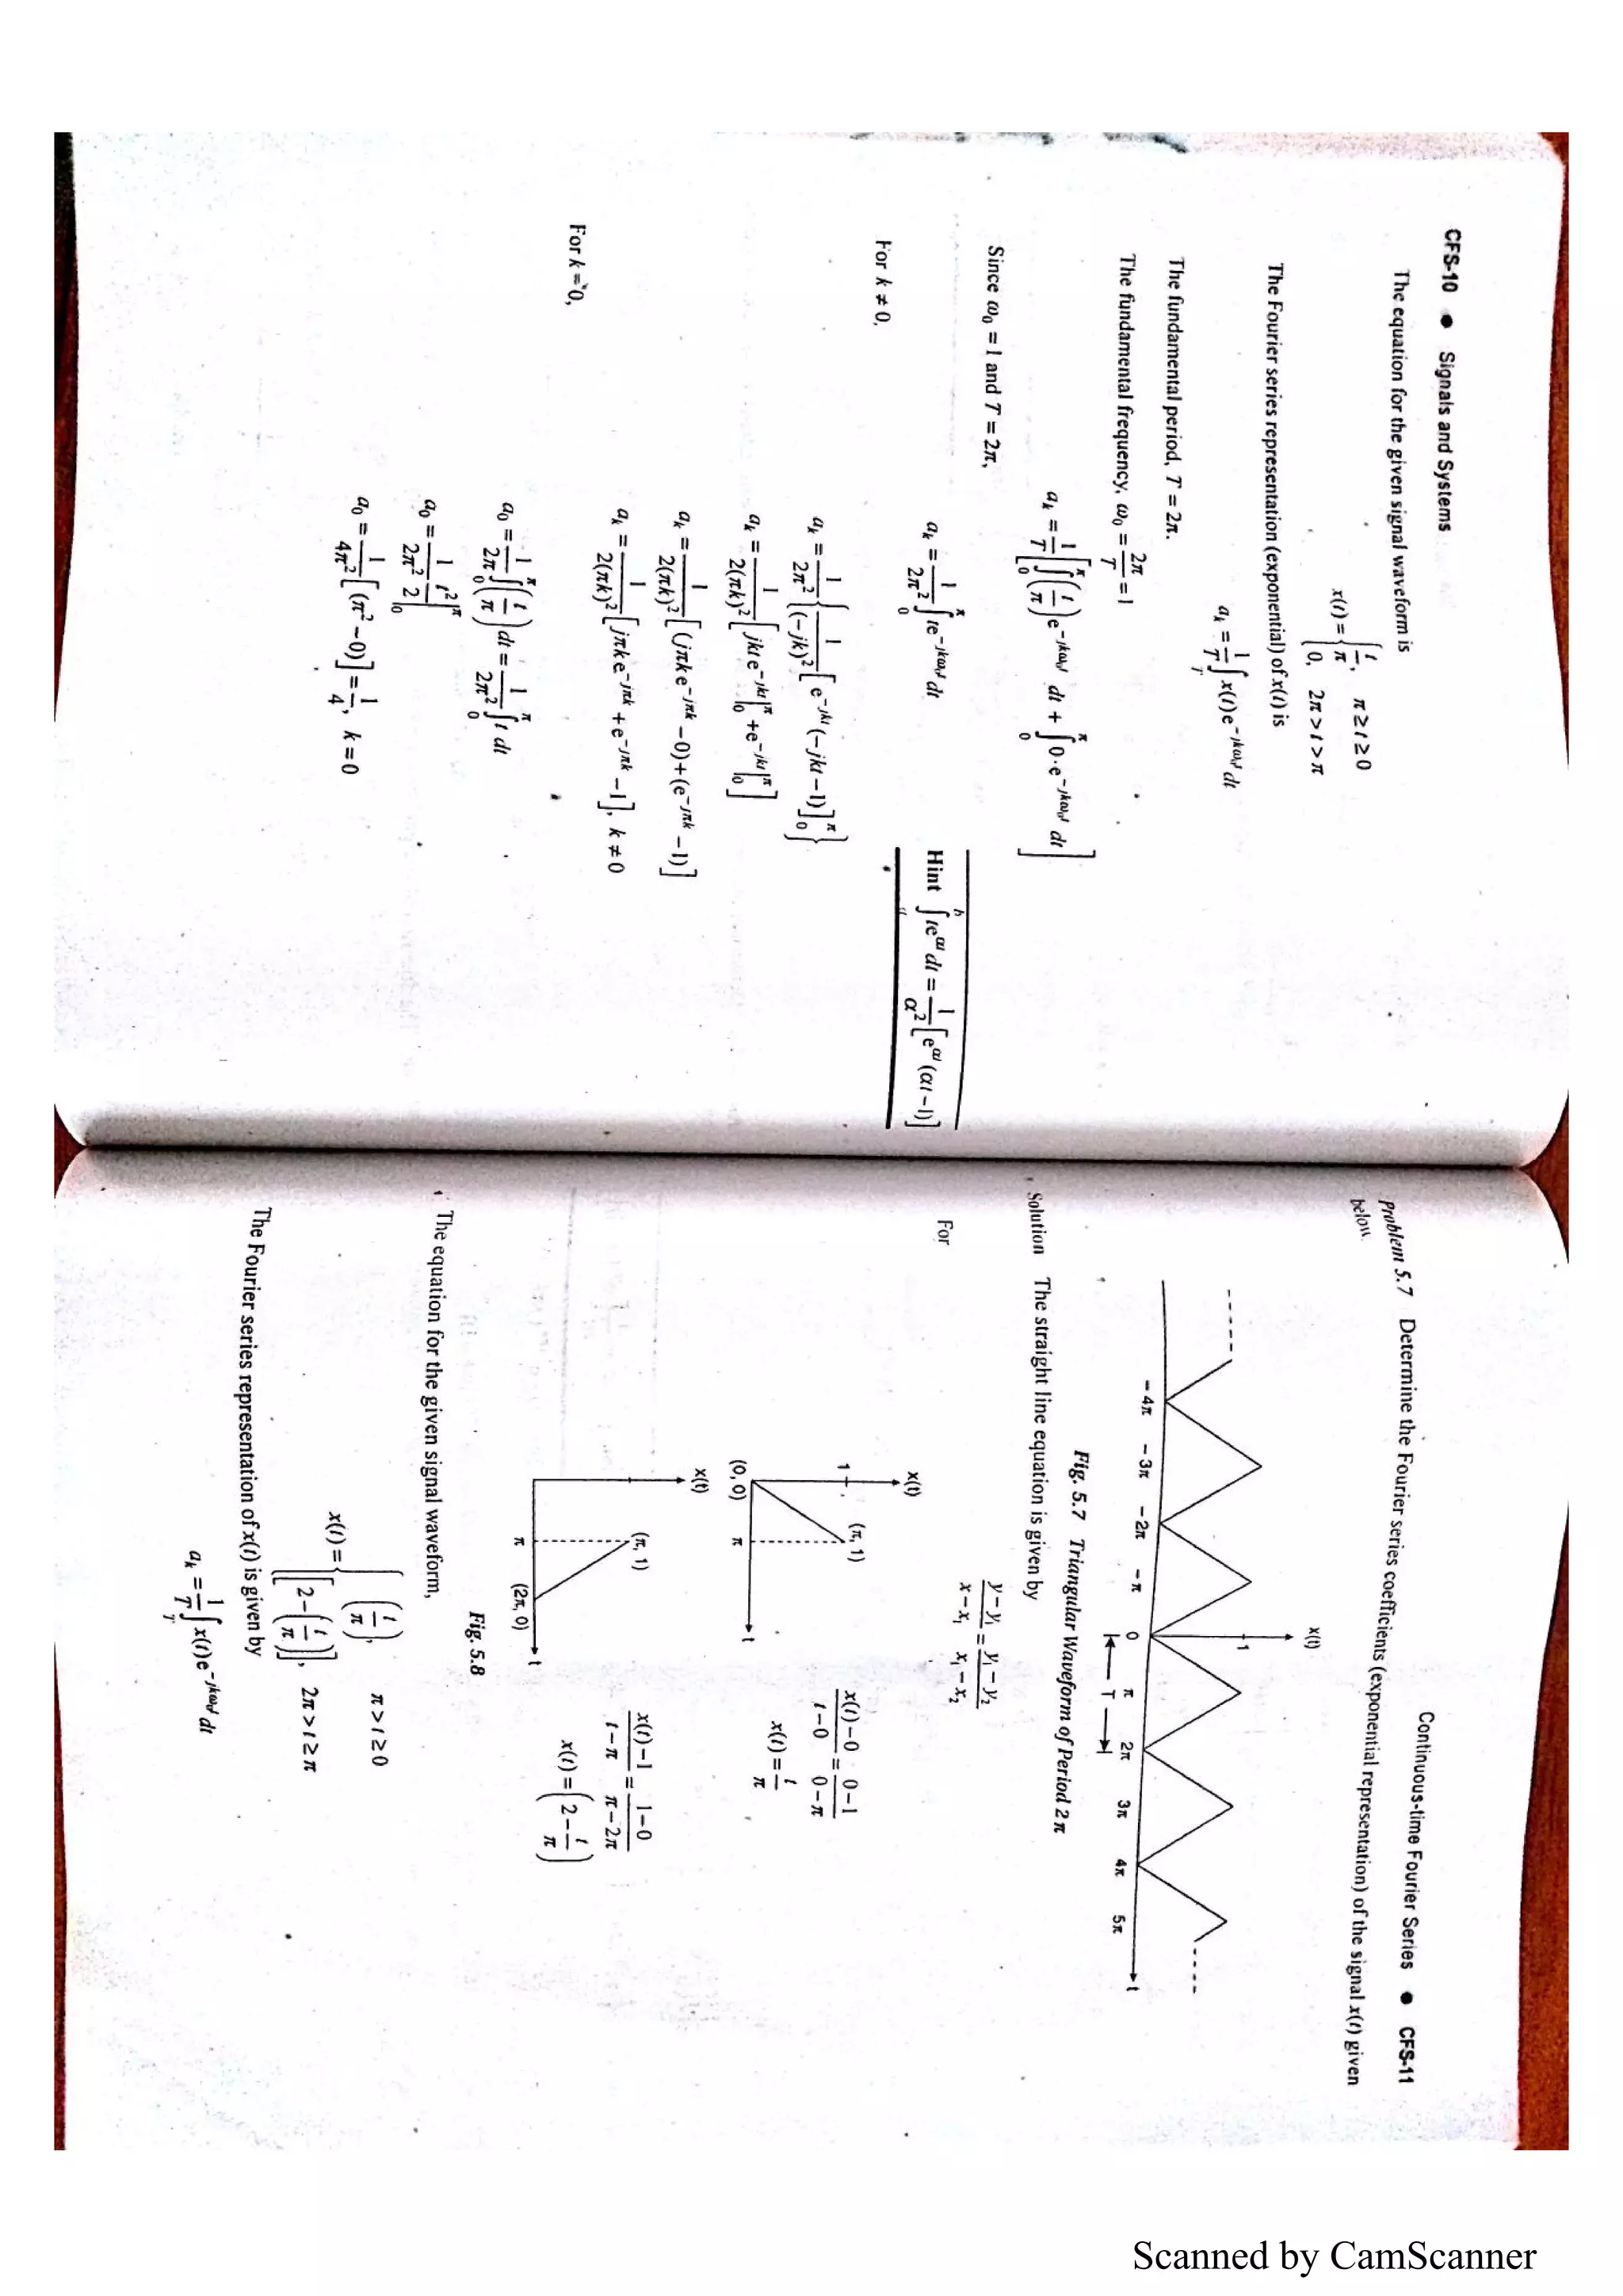 CFS-10 ● Signals and Systems
The equation for the given signal waveform is
x(t) = { t/π, π ≥ t ≥ 0
0, 2π > t > π
The Fourier series representation (exponential) of x(t) is
a_k = 1/T ∫_T x(t) e^{-jkω₀t} dt
The fundamental period, T = 2π.
The fundamental frequency, ω₀ = 2π/T = 1
a_k = 1/T [ ∫_0^π (t/π) e^{-jkω₀t} dt + ∫_0^π 0·e^{-jkω₀t} dt ]
Since ω₀ = 1 and T = 2π,
a_k = 1/2π² ∫_0^π t e^{-jkω₀t} dt
Hint ∫_a^b t e^{αt} dt = 1/α² [e^{αt} (αt − 1)]
For k ≠ 0,
a_k = 1/2π² { 1/(−jk)² [ e^{-jkt} (−jkt − 1) ]_0^π }
a_k = 1/2(πk)² [ jkt e^{-jkt} |_0^π + e^{-jkt} |_0^π ]
a_k = 1/2(πk)² [ (jπk e^{-jπk} − 0) + (e^{-jπk} − 1) ]
a_k = 1/2(πk)² [ jπk e^{-jπk} + e^{-jπk} − 1 ], k ≠ 0
For k = 0,
a₀ = 1/2π ∫_0^π (t/π) dt = 1/2π² ∫_0^π t dt
a₀ = 1/2π² t²/2 |_0^π
a₀ = 1/4π² [ (π² − 0) ] = 1/4, k = 0
Continuous-time Fourier Series ● CFS-11
Problem 5.7 Determine the Fourier series coefficients (exponential representation) of the signal x(t) given
below.
x(t)
1
−4π −3π −2π −π 0 π 2π 3π 4π 5π t
T
Fig. 5.7 Triangular Waveform of Period 2π
Solution The straight line equation is given by
y − y₁ / x − x₁ = y₁ − y₂ / x₁ − x₂
For
x(t)
1
(π, 1)
(0, 0)
π
t
x(t) − 0 / t − 0 = 0 − 1 / 0 − π
x(t) = t/π
x(t)
(π, 1)
π
(2π, 0)
t
x(t) − 1 / t − π = 1 − 0 / π − 2π
x(t) = (2 − t/π)
Fig. 5.8
The equation for the given signal waveform,
x(t) = { (t/π), π > t ≥ 0
[2 − (t/π)], 2π > t ≥ π
The Fourier series representation of x(t) is given by
a_k = 1/T ∫_T x(t) e^{-jkω₀t} dt
Scanned by CamScanner